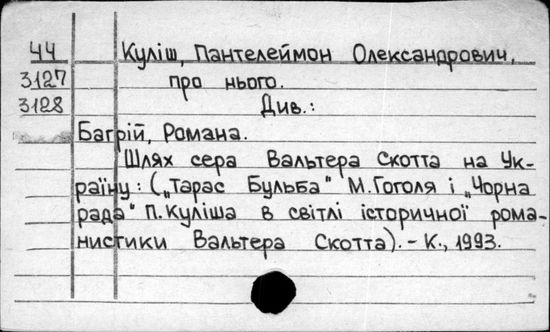 44 Куліш, Пантелеймон Олександрович,
3127 про нього.
3128 Див.:
Багрій, Романа.
Шлях сера Вальтера Скотта на Ук-
раїну: („Тарас Бульба" М.Гоголя і „Чорна
рада" П.Куліша в світлі історичної рома-
нистики Вальтера Скотта). – К., 1993.